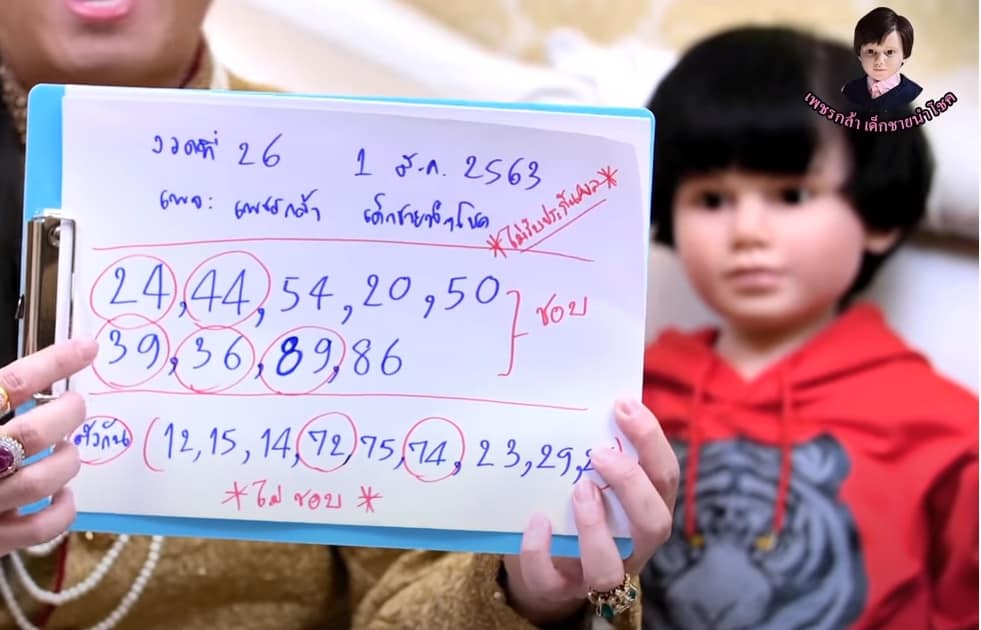 งวดที่ 26 1 มี.ค. 2563
เพจ: เพชรกล้า เด็กชายนำโชค
*ไม่รับประกันผล*
24, 44, 54, 20, 50
39, 36, 89, 86
} ชอบ
ตัวกัน (12, 15, 14, 72, 75, 74, 23, 29,
*ไม่ ชอบ*
เพชรกล้า เด็กชายนำโชค